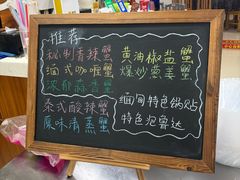 推荐
秘制香辣蟹
缅式咖喱蟹
泰式酸辣蟹
原味清蒸蟹
黄油椒盐蟹
爆炒葱姜蟹
缅甸特色锅贴
特色泡鲁达